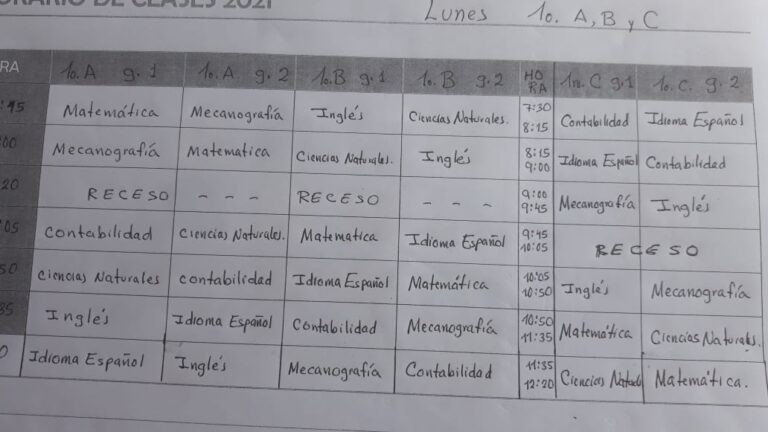 HORARIO DE CLASES 2021
Lunes 1o. A, B y C
RA 1o. A g. 1 1o. A g. 2 1o. B g. 1 1o. B g. 2 HORA 1o. C g. 1 1o. C. g. 2
:45 Matemática Mecanografía Inglés Ciencias Naturales. 7:30 8:15 Contabilidad Idioma Español
:00 Mecanografía Matematica Ciencias Naturales. Inglés 8:15 9:00 Idioma Español Contabilidad
:20 RECESO - - - RECESO - - - 9:00 9:45 Mecanografía Inglés
:05 Contabilidad Ciencias Naturales. Matematica Idioma Español 9:45 10:05 RECESO
50 Ciencias Naturales contabilidad Idioma Español Matemática 10:05 10:50 Inglés Mecanografía
35 Inglés Idioma Español Contabilidad Mecanografía 10:50 11:35 Matemática Ciencias Naturales.
0 Idioma Español Inglés Mecanografía Contabilidad 11:35 12:20 Ciencias Matemática.